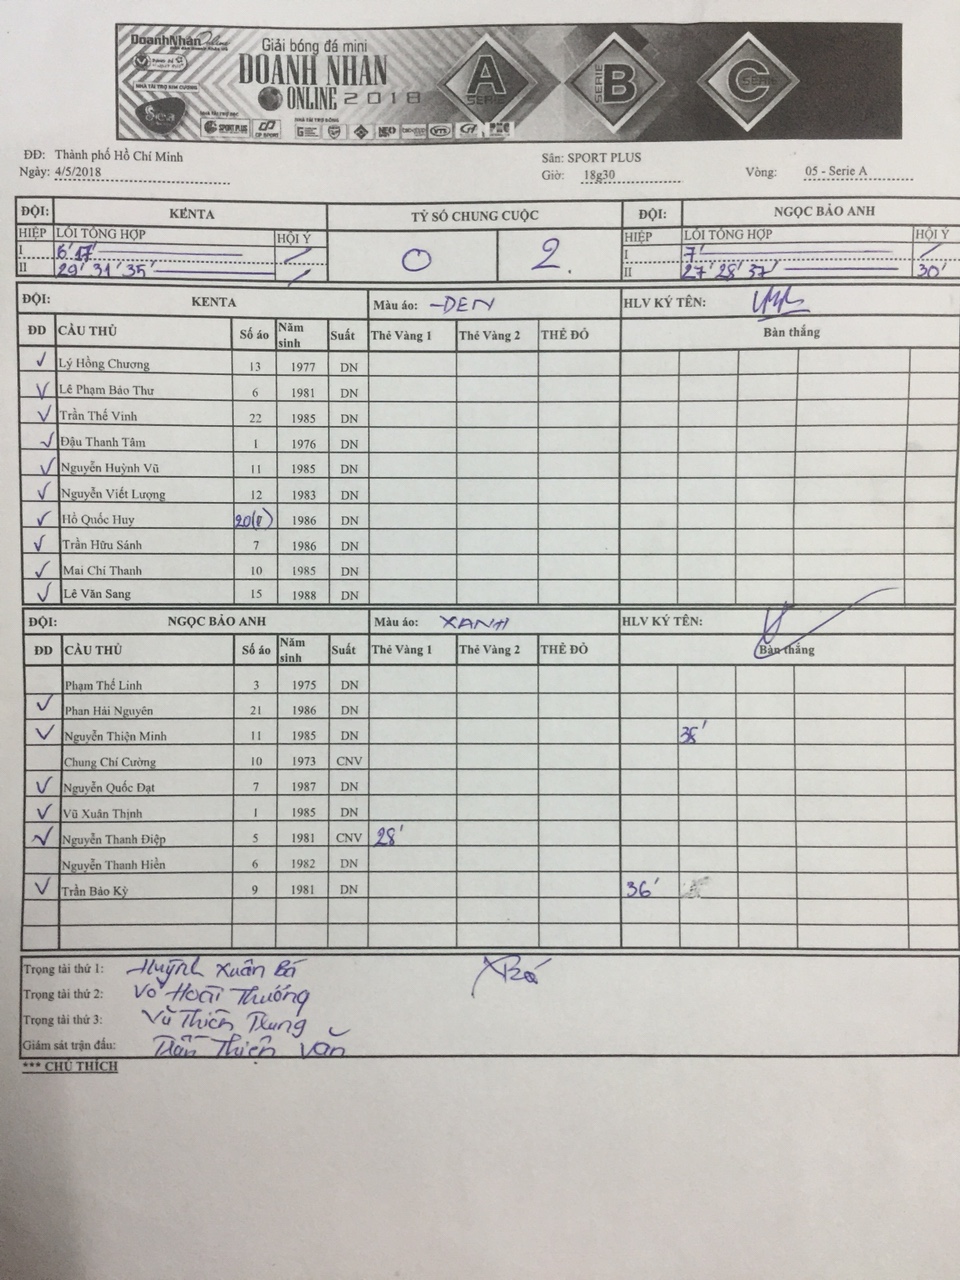 DoanhNhan Online
Giải bóng đá mini
DOANH NHÂN
ONLINE 2018
A SERIE
SERIE B
C SERIE
NHÀ TÀI TRỢ KIM CƯƠNG
SPORT PLUS
ĐĐ: Thành phố Hồ Chí Minh Sân: SPORT PLUS
Ngày: 4/5/2018 Giờ: 18g30 Vòng: 05 - Serie A
ĐỘI: KENTA TỶ SỐ CHUNG CUỘC ĐỘI: NGỌC BẢO ANH
HIỆP LỖI TỔNG HỢP HỘI Ý 0 2. HIỆP LỖI TỔNG HỢP HỘI Ý
I 6' 17' I 7'
II 29' 31' 35' II 27' 28' 37' 30'
ĐỘI: KENTA Màu áo: ĐEN HLV KÝ TÊN:
ĐD CẦU THỦ Số áo Năm sinh Suất Thẻ Vàng 1 Thẻ Vàng 2 THẺ ĐỎ Bàn thắng
✓ Lý Hồng Chương 13 1977 DN
✓ Lê Phạm Bảo Thư 6 1981 DN
✓ Trần Thế Vinh 22 1985 DN
✓ Đậu Thanh Tâm 1 1976 DN
✓ Nguyễn Huỳnh Vũ 11 1985 DN
✓ Nguyễn Viết Lượng 12 1983 DN
✓ Hồ Quốc Huy 20 1986 DN
✓ Trần Hữu Sánh 7 1986 DN
✓ Mai Chí Thanh 10 1985 DN
✓ Lê Văn Sang 15 1988 DN
ĐỘI: NGỌC BẢO ANH Màu áo: XANH HLV KÝ TÊN:
ĐD CẦU THỦ Số áo Năm sinh Suất Thẻ Vàng 1 Thẻ Vàng 2 THẺ ĐỎ Bàn thắng
Phạm Thế Linh 3 1975 DN
✓ Phan Hải Nguyên 21 1986 DN
✓ Nguyễn Thiện Minh 11 1985 DN 38'
Chung Chí Cường 10 1973 CNV
✓ Nguyễn Quốc Đạt 7 1987 DN
✓ Vũ Xuân Thịnh 1 1985 DN
✓ Nguyễn Thanh Điệp 5 1981 CNV 28'
Nguyễn Thanh Hiền 6 1982 DN
✓ Trần Bảo Kỳ 9 1981 DN 36'
Trọng tài thứ 1: Huỳnh Xuân Bá
Trọng tài thứ 2: Võ Hoài Thương
Trọng tài thứ 3: Vũ Thiên
Giám sát trận đấu: Trần Thiên Văn
*** CHÚ THÍCH